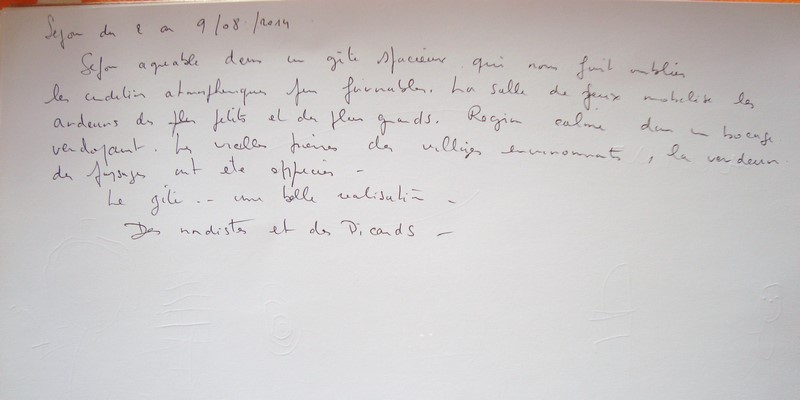 Séjour du 2 au 9/08/2014
Séjour agréable dans un gîte spacieux qui nous fait oublier
les conditions atmosphériques peu favorables. La salle de jeux mobilise les
ardeurs des plus petits et des plus grands. Région calme dans un bocage
verdoyant. Les vieilles pierres des villages environnants, la verdeur
des paysages ont été appréciés -
Le gîte... une belle réalisation -
Des nordistes et des Picards -